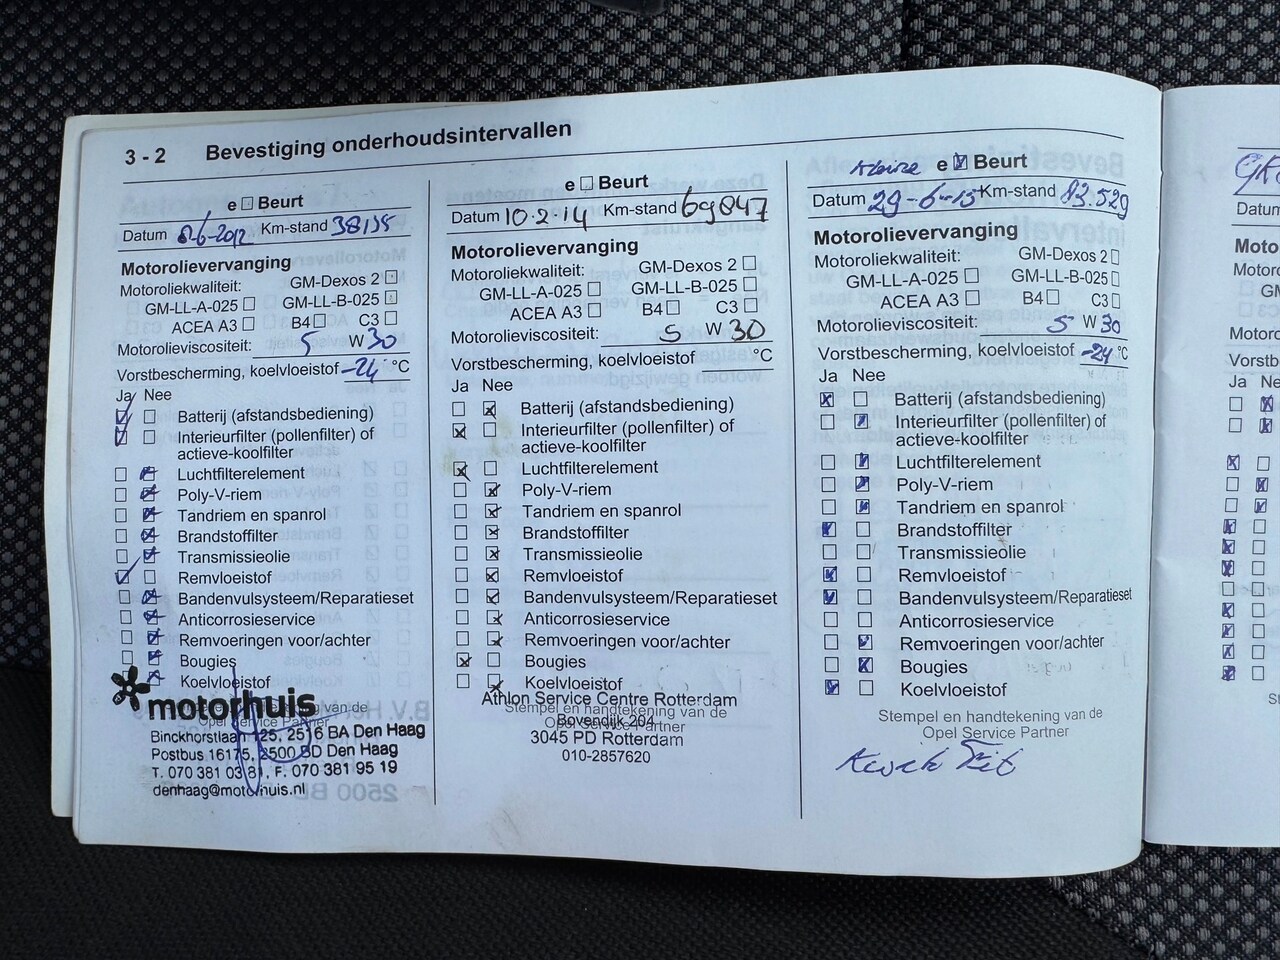 3 - 2 Bevestiging onderhoudsintervallen
e Beurt
Datum 8-6-2012 Km-stand
Motorolievervanging
Motoroliekwaliteit: GM-Dexos 2
GM-LL-A-025 GM-LL-B-025
ACEA A3 B4 C3
Motorolieviscositeit: 5 W 30
Vorstbescherming, koelvloeistof -24 °C
Ja Nee
Batterij (afstandsbediening)
Interieurfilter (pollenfilter) of
actieve-koolfilter
Luchtfilterelement
Poly-V-riem
Tandriem en spanrol
Brandstoffilter
Transmissieolie
Remvloeistof
Bandenvulsysteem/Reparatieset
Anticorrosieservice
Remvoeringen voor/achter
Bougies
Koelvloeistof
motorhuis
Stempel en handtekening van de
Opel Service Partner
Binckhorstlaan 125, 2516 BA Den Haag
Postbus 16175, 2500 BD Den Haag
T. 070 381 03 81, F. 070 381 95 19
denhaag@motorhuis.nl
e Beurt
Datum 10-2-14 Km-stand 69847
Motorolievervanging
Motoroliekwaliteit: GM-Dexos 2
GM-LL-A-025 GM-LL-B-025
ACEA A3 B4 C3
Motorolieviscositeit: 5 W 30
Vorstbescherming, koelvloeistof °C
Ja Nee
Batterij (afstandsbediening)
Interieurfilter (pollenfilter) of
actieve-koolfilter
Luchtfilterelement
Poly-V-riem
Tandriem en spanrol
Brandstoffilter
Transmissieolie
Remvloeistof
Bandenvulsysteem/Reparatieset
Anticorrosieservice
Remvoeringen voor/achter
Bougies
Koelvloeistof
Athlon Service Centre Rotterdam
Stempel en handtekening van de
Bovendijk 204
Opel Service Partner
3045 PD Rotterdam
010-2857620
Kleine e Beurt
Datum 29-6-15 Km-stand 83.529
Motorolievervanging
Motoroliekwaliteit: GM-Dexos 2
GM-LL-A-025 GM-LL-B-025
ACEA A3 B4 C3
Motorolieviscositeit: 5 W 30
Vorstbescherming, koelvloeistof -24 °C
Ja Nee
Batterij (afstandsbediening)
Interieurfilter (pollenfilter) of
actieve-koolfilter
Luchtfilterelement
Poly-V-riem
Tandriem en spanrol
Brandstoffilter
Transmissieolie
Remvloeistof
Bandenvulsysteem/Reparatieset
Anticorrosieservice
Remvoeringen voor/achter
Bougies
Koelvloeistof
Stempel en handtekening van de
Opel Service Partner
Kwik Fit
Datum
Ja Nee